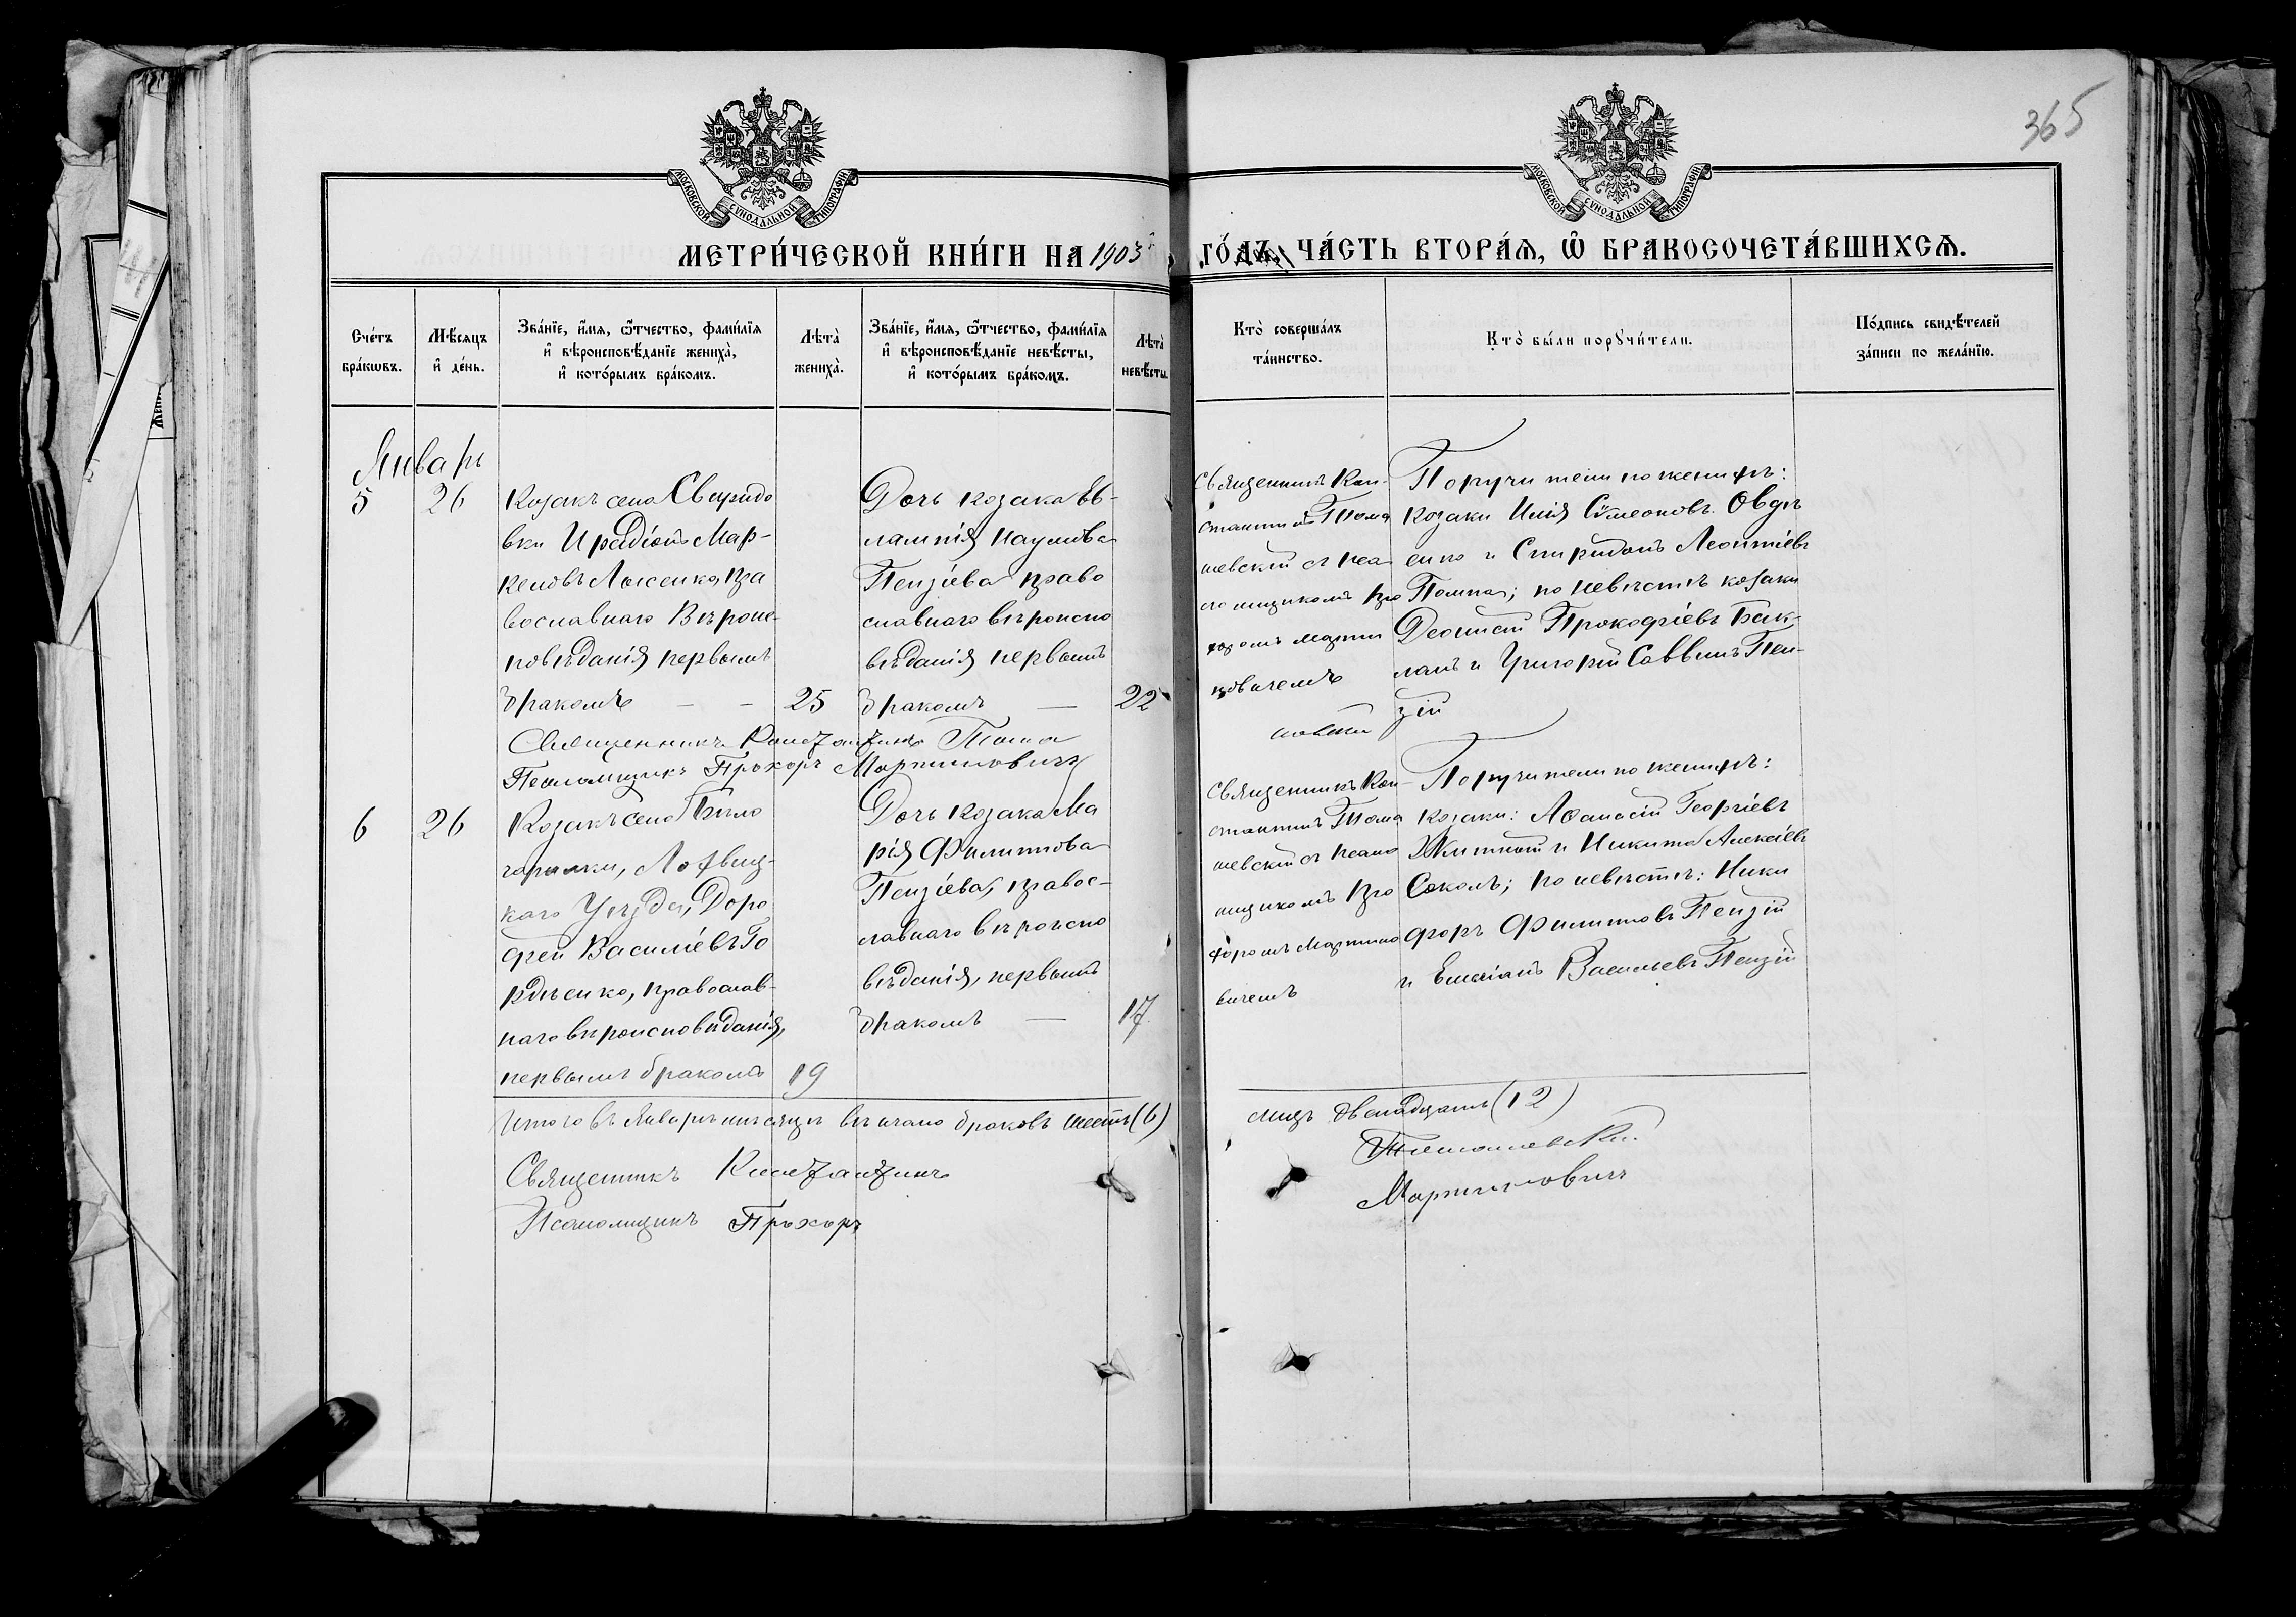 365
МОСКОВСКОЙ СѴНОДАЛЬНОЙ ТИПОГРАФІИ
МОСКОВСКОЙ СѴНОДАЛЬНОЙ ТИПОГРАФІИ
МЕТРИ́ЧЕСКОЙ КНИ́ГИ НА 1903 ГО́ДЪ, ЧА́СТЬ ВТОРА́Ѧ, Ѡ҆ БРАКОСОЧЕТА́ВШИХСѦ.
Сче́тъ
бра́ковъ.
Мѣ́сяцъ
и҆ де́нь.
Зва́нїе, и҆́мя, ѻ҆́тчество, фами́лїя
и҆ вѣроисповѣ́данїе жениха̀,
и҆ кото́рымъ бра́комъ.
Лѣта̀
жениха̀.
Зва́нїе, и҆́мя, ѻ҆́тчество, фами́лїя
и҆ вѣроисповѣ́данїе невѣ́сты,
и҆ кото́рымъ бра́комъ.
Лѣта̀
невѣ́сты.
Кто̀ соверша́лъ
та́инство.
Кто̀ бы́ли порꙋчи́тели.
По́дпись свидѣ́телей
за́писи по жела́нїю.
Январь
5
26
Козакъ села Свиридо
вки Ираdiонъ Мар-
келовъ Лысенко, пра
вославнаго Вѣроис-
повѣданія первымъ
бракомъ — —
25
Дочь козака Ев-
лампія Наумова
Пензіева право
славнаго вѣроиспо
вѣданія первымъ
бракомъ —
22
Священникъ Кон-
стантинъ Тома
шевскій съ псал
омщикомъ Про
хоромъ Марти
новичемъ
Поручители по женихѣ:
Козаки Илія Сѵмеоновъ Овдѣ
енко и Спиридонъ Леонтіевъ
Помпа; по невѣстѣ козаки
Леонтій Прокофіевъ Бак-
ланъ и Григорій Саввинъ Пен-
зій
Священникъ Константинъ Тома
шевскій
Псаломщикъ Прохоръ Мартиновичъ
6
26
Козакъ села Бѣло
горилки, Лохвиц-
каго Уѣзда, Доро
фей Василіевъ Го
рдѣенко, православ-
наго вѣроисповѣданія,
первымъ бракомъ
19
Дочь козака Ма
рія Филиппова
Пензіева, правос-
лавнаго вѣроиспо
вѣданія, первымъ
бракомъ —
17
Священникъ Кон-
стантинъ Тома
шевскій съ псало
мщикомъ Про
хоромъ Мартино
вичемъ
Поручители по женихѣ:
козаки: Аѳанасій Георгіевъ
Житній и Никита Алексіевъ
Соколъ; по невѣстѣ: Ники
форъ Филипповъ Пензій
и Емиліанъ Васильевъ Пензій
Итого въ Январѣ мѣсяцѣ вѣнчано браковъ шесть (6)
лицъ двенадцать (12)
Священникъ Константинъ Томашевскій
Псаломщикъ Прохоръ Мартиновичъ